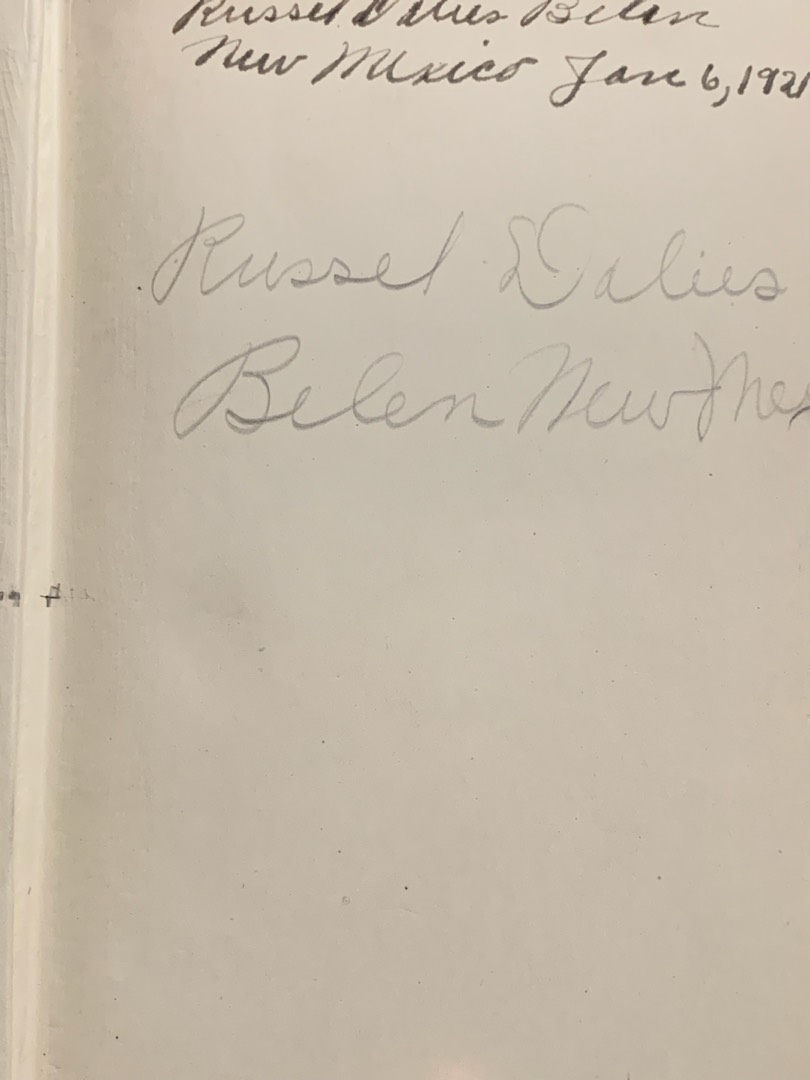 Russel Dalies Belen
New Mexico Jan 6, 1921
Russel Dalies
Belen New Mex